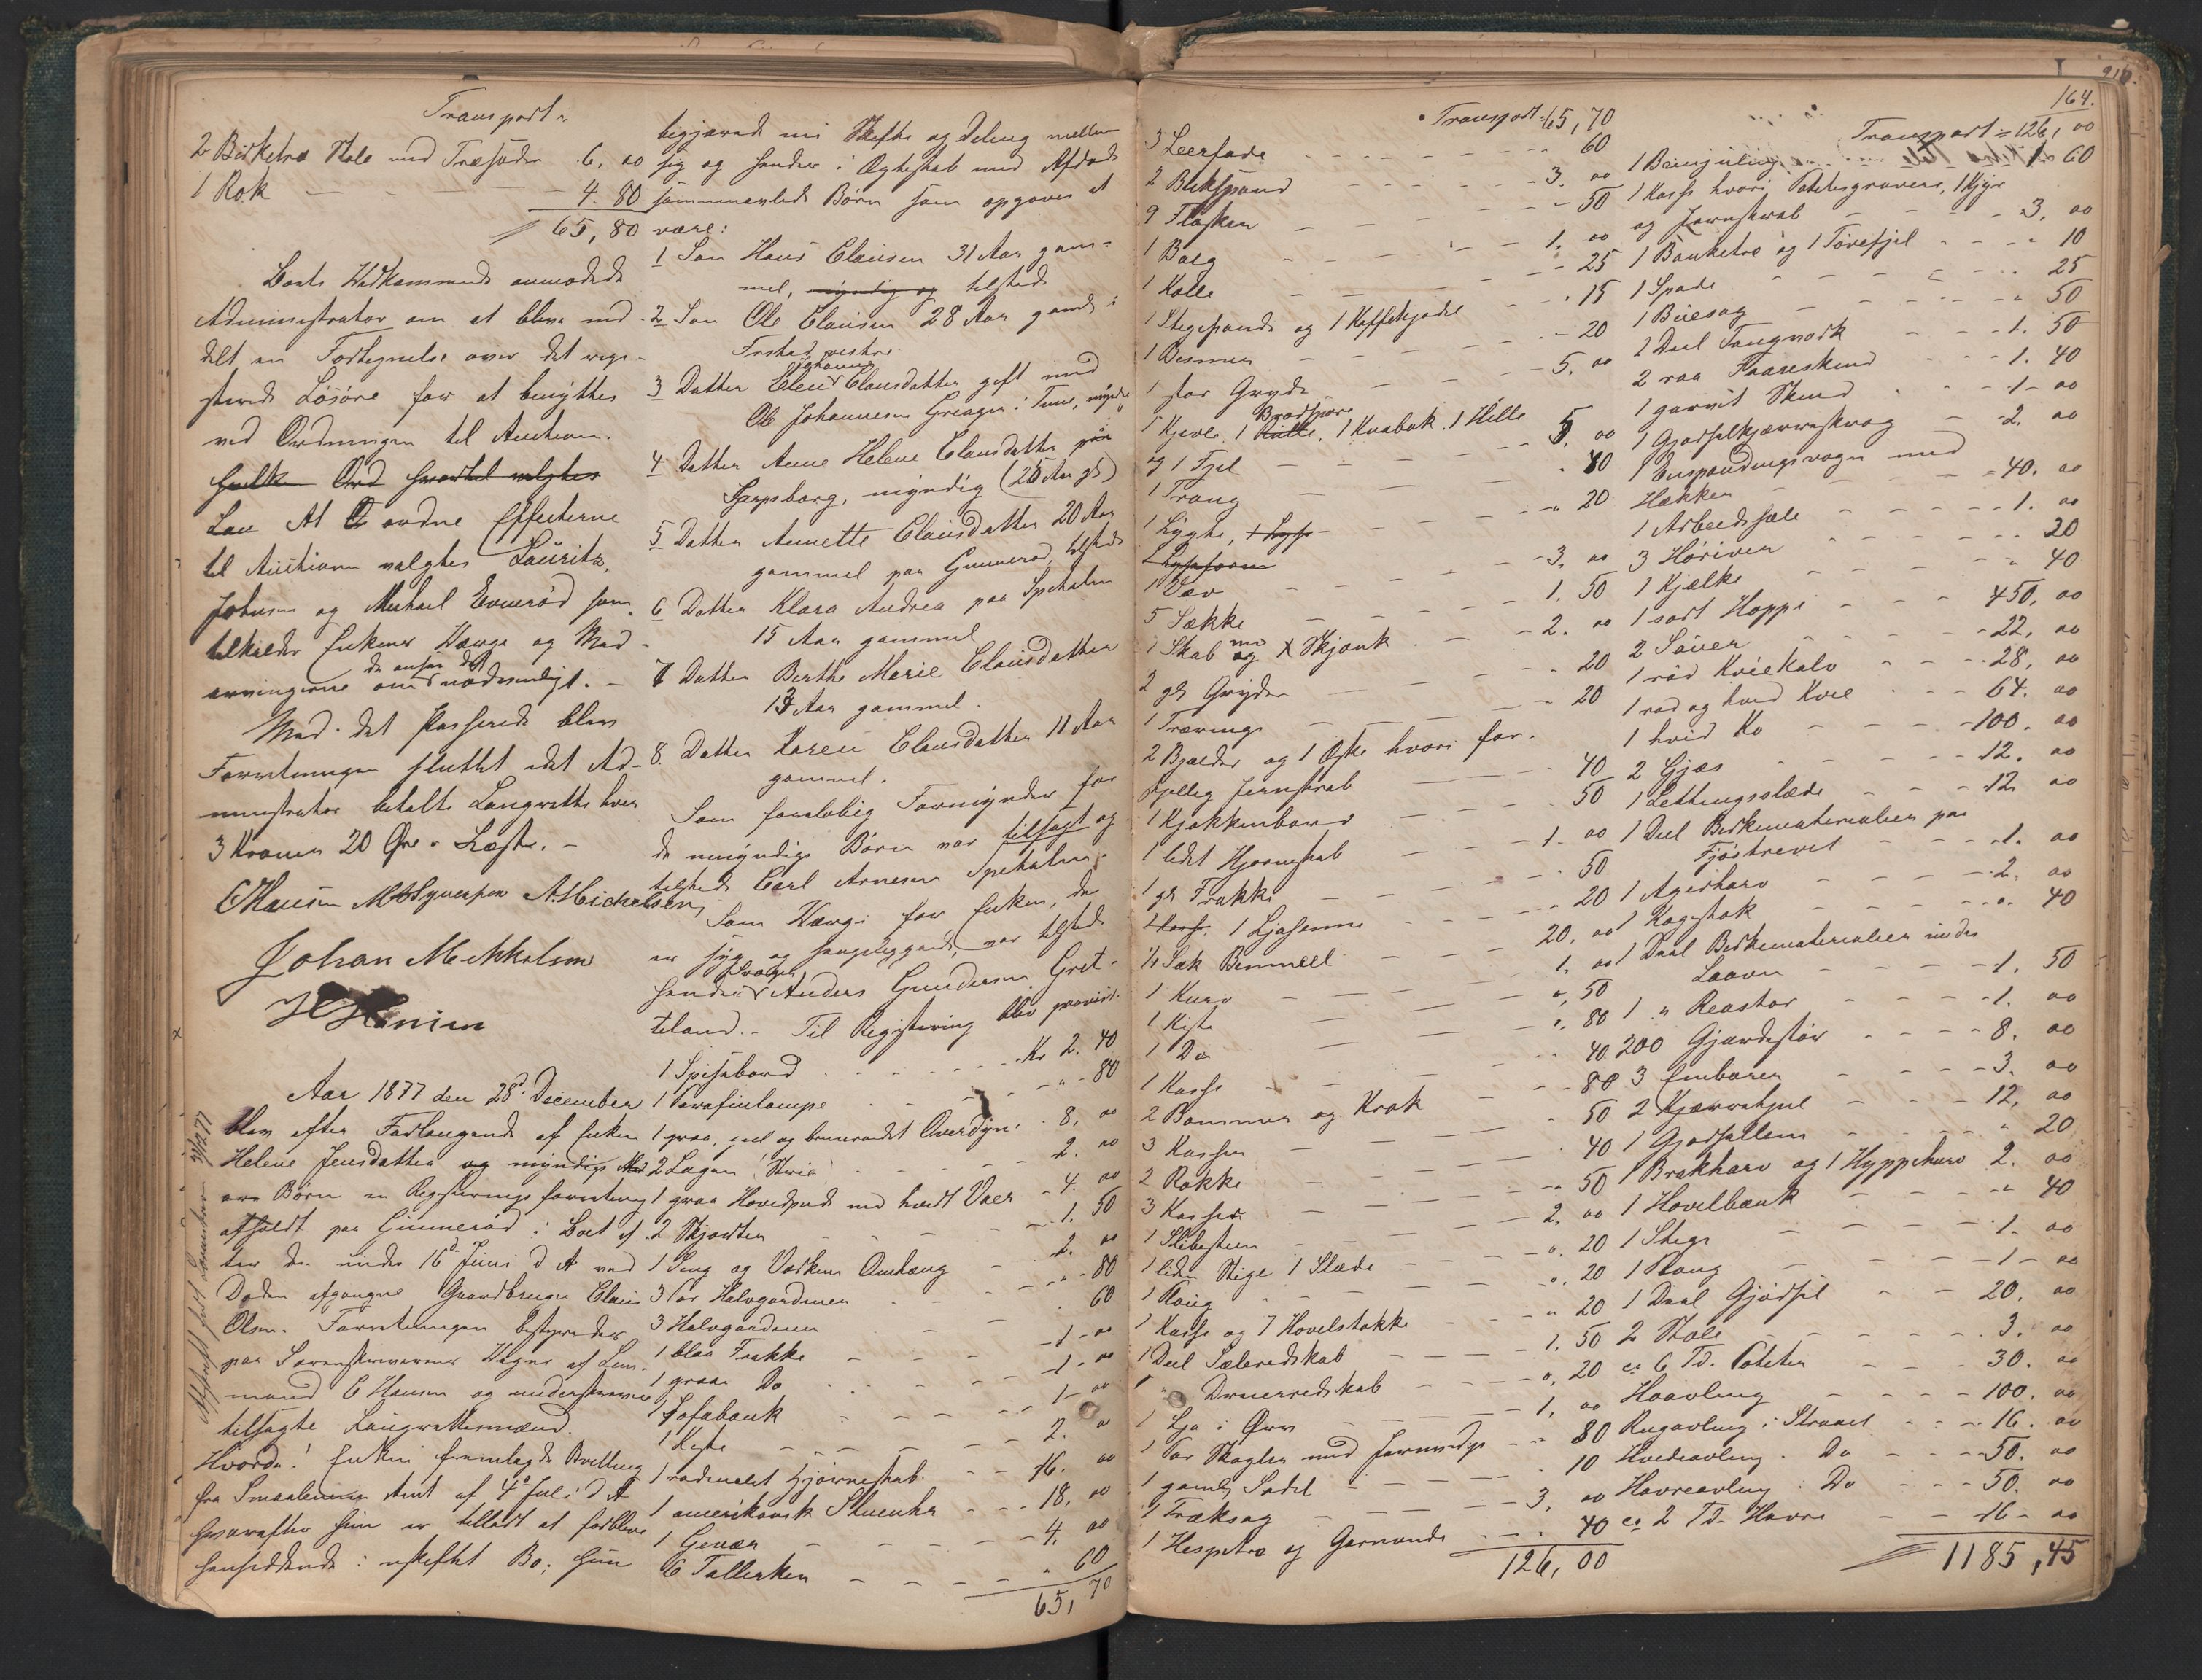 Transport "
2 Birketræ Stole med Træsæder 6. 00
1 Rok 4. 80
65,80
Boets Vedkommende anmodede
Administrator om at blive med-
delt en Fortegnelse over det regi-
strerede Løsøre for at benyttes
ved Ordningen til Auction.
Lau At ordne Effecterne
til Auctionen valgtes Lauritz
Johnsen og Michael Evenrød som
tilkalder Enkens Værge og Med-
arvingerne om de anser det nødvendigt. –
Med det Passerede blev
Forretningen sluttet idet Ad-
ministrator betalte Laugrettet hver
3 Kroner 20 Øre.
C Hansen A. Michelsen
Johan Mikkelsen
H Hansen
Aar 1877 den 28d. December
blev efter Forlangende af Enken
Helene Jensdatter og myndige Med
arv Børn en Registreringsforretning
afholdt paa Gunnerød i Boet ef-
ter den under 16d Juni d A ved
Døden afgangne Gaardbruger Claus
Olsen. Forretningen bestyredes
paa Sorenskriverens Vegne af Lens-
mand C Hansen og underskrevne
tilsagte Laugrettesmænd.
Hvorda! Enken fremlagde Bevilling
fra Smaalenenes Amt af 4de Juli d A
hvorefter hun er tilladt at forblive
hensiddende i uskiftet Bo; hun
Afskrift sendt 31/12 77
begjærede nu Skifte og Deling mellem
sig og hendes i Ægteskab med Afdøde
sammenavlede Børn som opgaves at
være:
1 Søn Hans Clausen 31 Aar gam-
mel, myndig og tilstede
2 Søn Ole Clausen 28 Aar gaml i
Frstad vestre
3 Datter Elen Johanne Clausdatter gift med
Ole Johannesen Greager i Tune, myndig
4 Datter Anne Helene Clausdatter paa
Sarpsborg, myndig (26 Aar gl)
5 Datter Annette Clausdatter 20 Aar
gammel paa Gunnerød, tilstede
6 Datter Klara Andrea paa Spetalen
15 Aar gammel
7 Datter Berthe Marie Clausdatter
13 Aar gammel.
8. Datter Karen Clausdatter 11 Aar
gammel.
Som foreløbig Formynder for
de umyndige Børn var tilsagt og
tilstede Carl Arnesen Spetalen.
Som Værge for Enken, der
er syg og sengeliggende, var tilstede
hendes Svoger Anders Gundersen Gret-
teland. – Til Registrering blev provist.
1 Spisebord Kr 2. 40
1 Parafinlampe " 80
1 graa, gul og brunrandet Overdyne 8, 00
2 Lagen Strie 2. 00
1 graa Hovedpude med hvidt Vaer 4. 00
2 Skjorter 1. 50
1 Seng og Værkens Omhæng 2. 00
3 Par Halvgardiner " 80
3 Halvgardiner 60
1 blaa Frakke 1 – 00
1 graa Do 1 – 00
1 Sofabænk 1 – 00
1 Kiste 2. 00
1 rødmalet Hjørneskab 16. 00
1 amerikansk Stueuhr 18, 00
1 Gevær 4. 00
6 Tallerken . 60
65, 70
164.
Transport 65,70
3 Leerfade 60
2 Blikspand 3. 00
9 Flasker " 50
1 Balg 1. 00
1 Kolle " 25
1 Stegepande og 1 Kaffekjedel " 15
1 Besmer " 20
1 stor Gryde 5. 00
1 Kjevle, 1 Brødspade, 1 Knabuk, 1 Hille
og 1 Fjel 5. 00
1 Traug . 40
1 Lygte, 1 Lyse " 20
1 Lyseform
1 Væv 3. 00
5 Sække 1. 50
1 Skab med Skjænk 2. 00
2 gl Gryder " 20
1 Trævinge " 20
2 Bjælder og 1 Æske hvori for-
skjellig Jernskrab 40
1 Kjøkkenbord 50
1 lidet Hjørneskab 1. 00
1 gl Frakke 50
1 Karse, 1 Ljasenne 20
½ Sæk Benmeel 20, 00
1 Kurv 1. 00
1 Kiste " 50
1 Do " 80
1 Kasse " 40
2 Bommer og Krak " 80
3 Kasser 50
2 Rokke 40
3 Kasser " 50
1 Slibesteen 2. 00
1 liden Stige 1 Slæde " 20
1 Stang " 20
1 Kasse og 7 Høvelstokke " 20
1 Deel Sæleredskab 1. 50
1 " Drænerredskab " 20
1 Ljå i Orv 1, 00
1 Par Skagler med Jernbeslag 80
1 gaml Sadel 10
1 Træksag 3. 00
1 Hespetræ og Garnvinde . 40
126, 00
Transport = 126, 00
1 60
1 Kasse hvori Potetesgravere, 1 Kjyre
og Jernskrab 3, 00
1 Bænketræ og 1 Tørefjel 10
1 Spade 25
1 Buesag 50
1 Deel Tougværk 1. 50
2 raa Faareskind 1. 40
1 garvet Skind 1 – 00
1 Gjødselkjærreskrog 2. 00
1 Enspændingsvogn med
Hækker 40. 00
1 Arbeidssele 1. 00
3 Høriver 20
1 Kjælke 40
1 sort Hoppe 450, 00
2 Sauer 22, 00
1 rød Kviekalv 28, 00
1 rød og hvid Kvie 64. 00
1 hvid Ko 100. 00
2 Gjæs 12. 00
1 Lettingsslæde 12 00
1 Deel Birkematerialier paa
Fjøstrevet 1. 00
1 Agerharv 2. 00
1 Kagestok 40
1 Deel Birkematerialier under
Laaven 1, 50
1 " Reastør 1. 00
200 Gjærdestør 8. 00
3 Embarer 3. 00
2 Kjærrehjul 12, 00
1 Gjødsellem " 20
1 Brakharv og 1 Hyppeharv 2. 00
1 Høvelbænk " 40
1 Stige 1. 00
1 Stang 1 – 00
1 Deel Gjødsel 20. 00
2 Stole 3. 00
ca 6 Td. Poteter 30. 00
Høavling 100. 00
Rugavling i Straaet 16. 00
Hvedeavling . Do 50. 00
Havreavling . Do 50. 00
ca 2 Td. Havre 16 – 00
1185,45